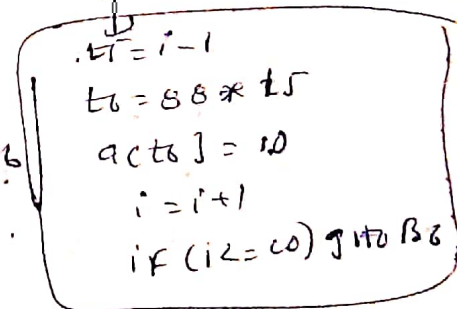 t5 = i-1
t6 = 88 * t5
a[t6] = 1.0
i = i+1
if (i <= 10) goto B6
6